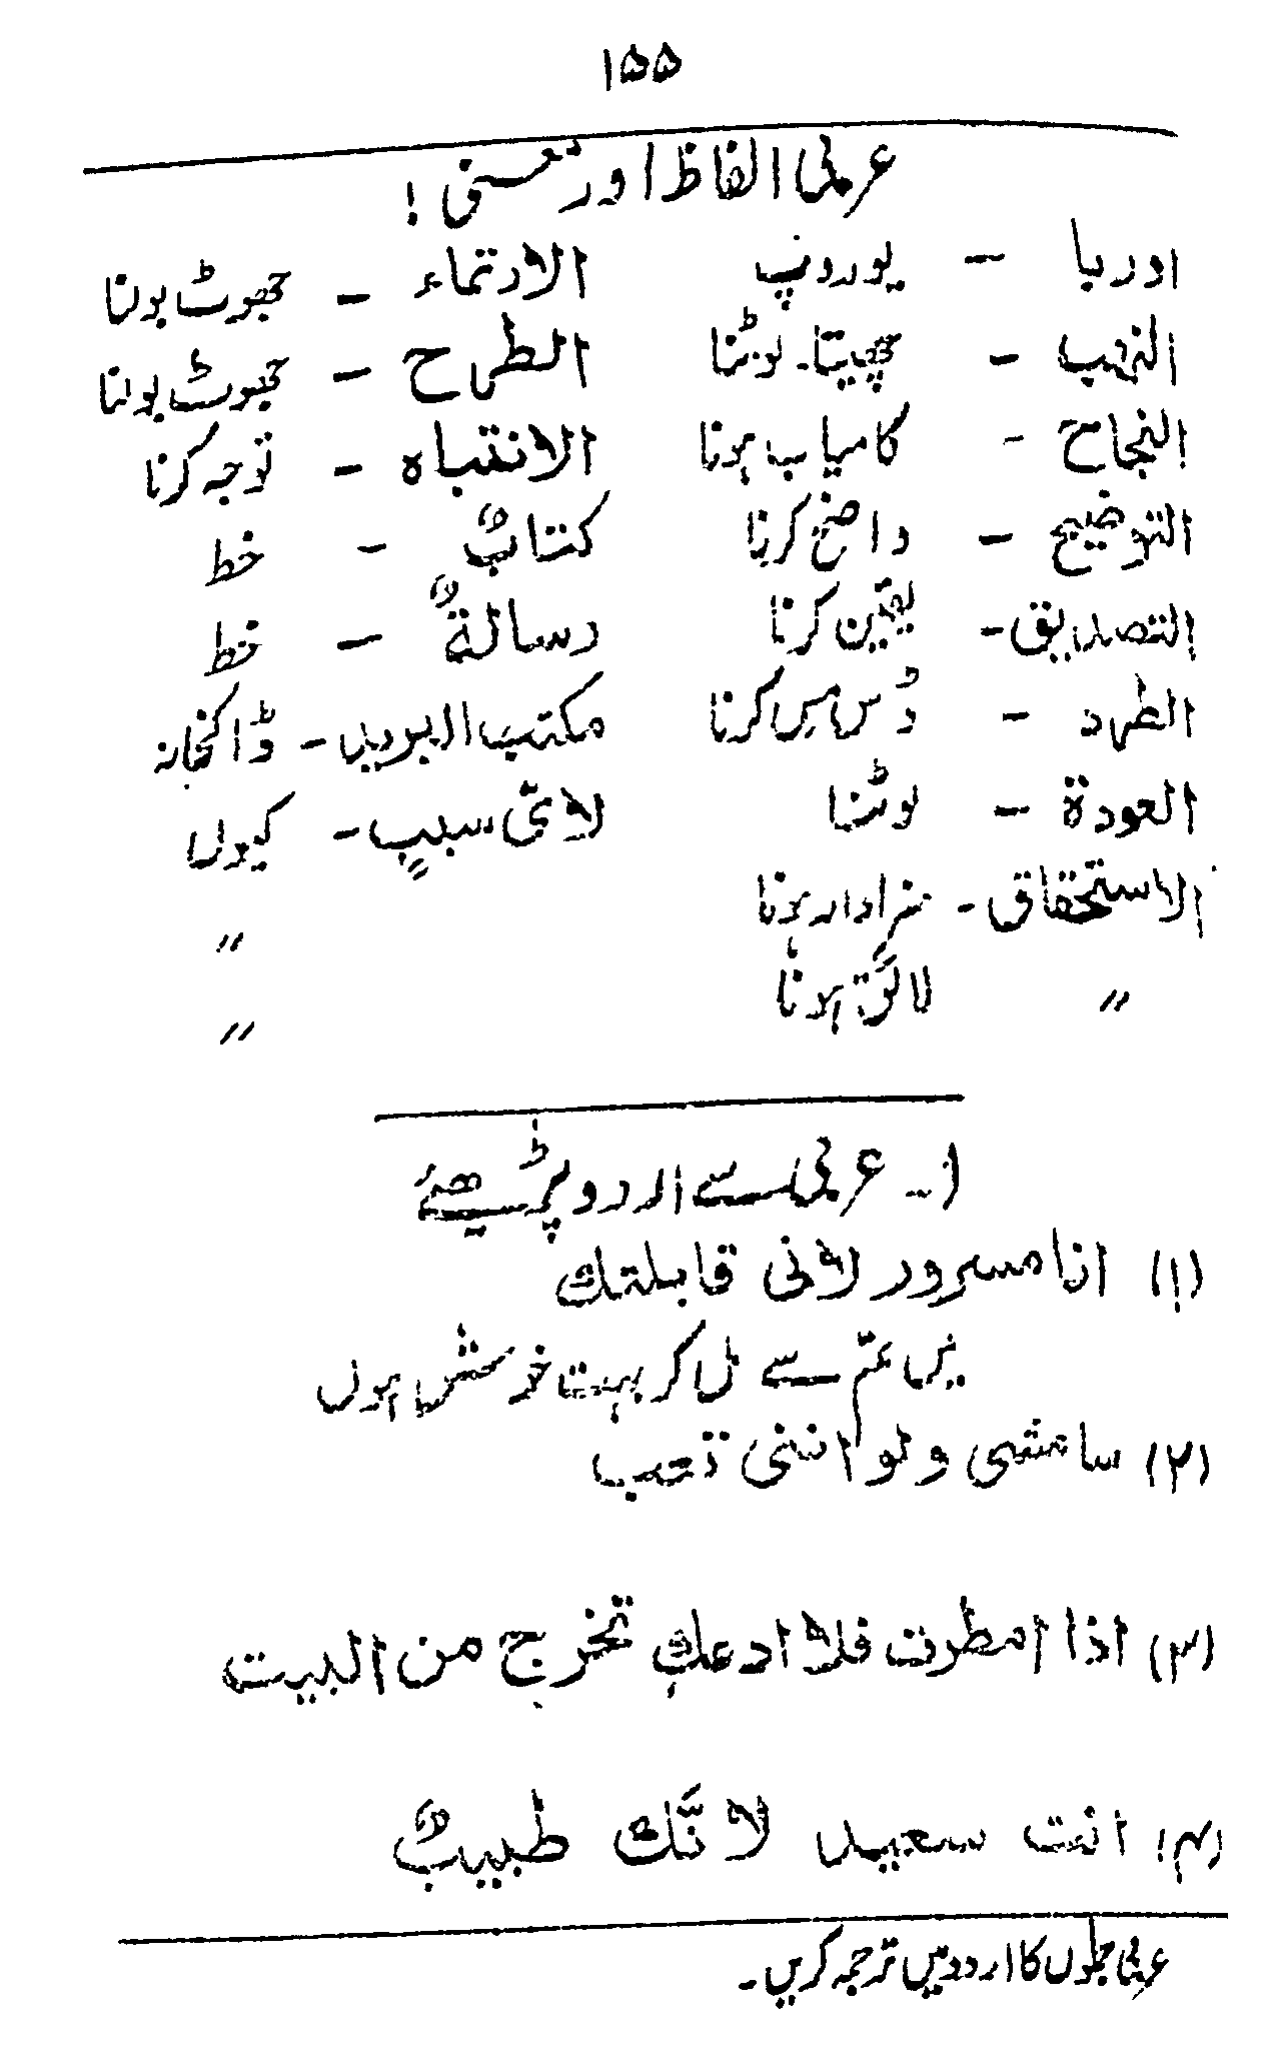 ۱۵۵
عربی الفاظ اور معنی !
اوربا – یوروپ الارتماء – جھوٹ بولنا
النهب – چھیننا۔ لوٹنا الطرح – جھوٹ بولنا
النجاح - کامیاب ہونا الانتباه – توجہ کرنا
التوضیح – واضح کرنا کتابٌ - خط
التصدیق - یقین کرنا رسالةٌ – خط
الطرد - ڈس مس کرنا مکتب البرید - ڈاکخانہ
العودة – لوٹنا لائی سببٍ - کیوں
الاستحقاق - سزاوار ہونا 〃
〃 لائق ہونا 〃
۱۔ عربی سے اردو پڑھیئے
(۱) انا مسرور لانی قابلتك
میں تم سے مل کر بہت خوش ہوں
(۲) سامشی ولو اننی تعب
(۳) اذا امطرت فلا ادعك تخرج من البیت
(۴) انت سعید لانَّك طبیبٌ
عربی جملوں کا اردو میں ترجمہ کریں۔